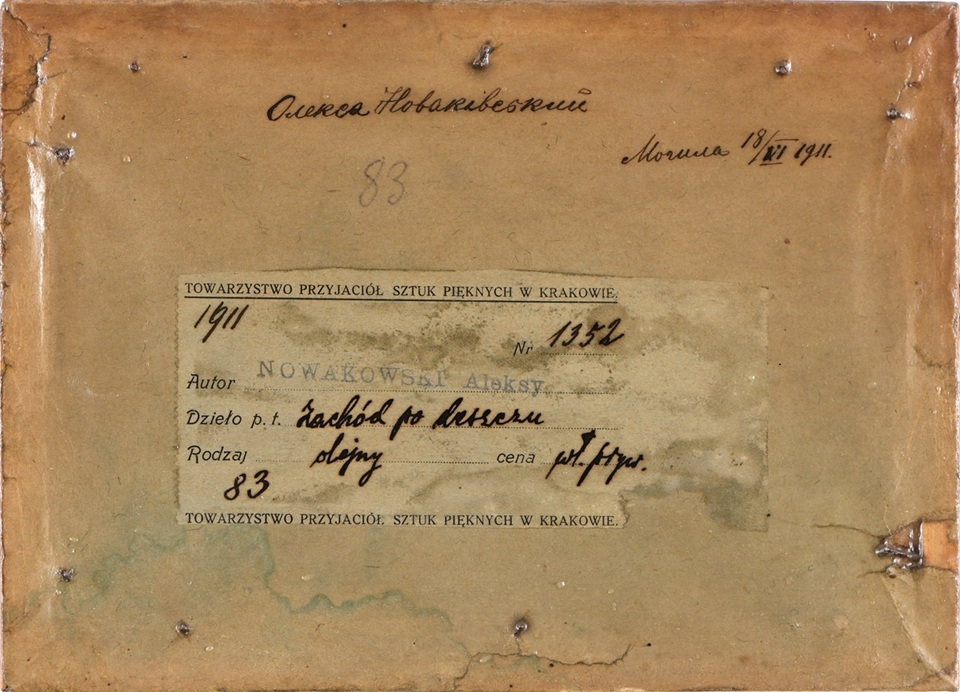 Олекса Новаківский
Могила 18/VI 1911.
83
TOWARZYSTWO PRZYJACIÓŁ SZTUK PIĘKNYCH W KRAKOWIE.
1911
Nr 1352
Autor NOWAKOWSKI Aleksy
Dzieło p. t. Zachód po deszczu
Rodzaj olejny cena wł. pryw.
83
TOWARZYSTWO PRZYJACIÓŁ SZTUK PIĘKNYCH W KRAKOWIE.